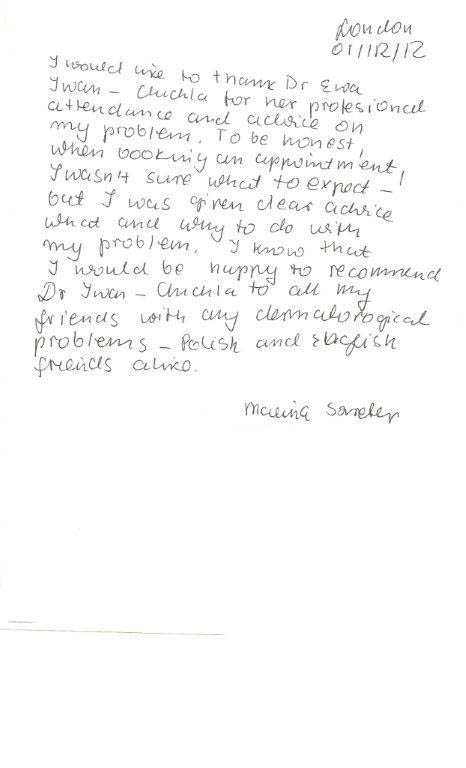 London
01/12/12
I would like to thank Dr Ewa
Iwan - Chuchla for her profesional
attendance and advice on
my problem. To be honest,
when booking an appointment,
I wasn't sure what to expect -
but I was given clear advice
what and why to do with
my problem. I know that
I would be happy to recommend
Dr Iwan - Chuchla to all my
friends with any dermatological
problems - Polish and English
friends alike.